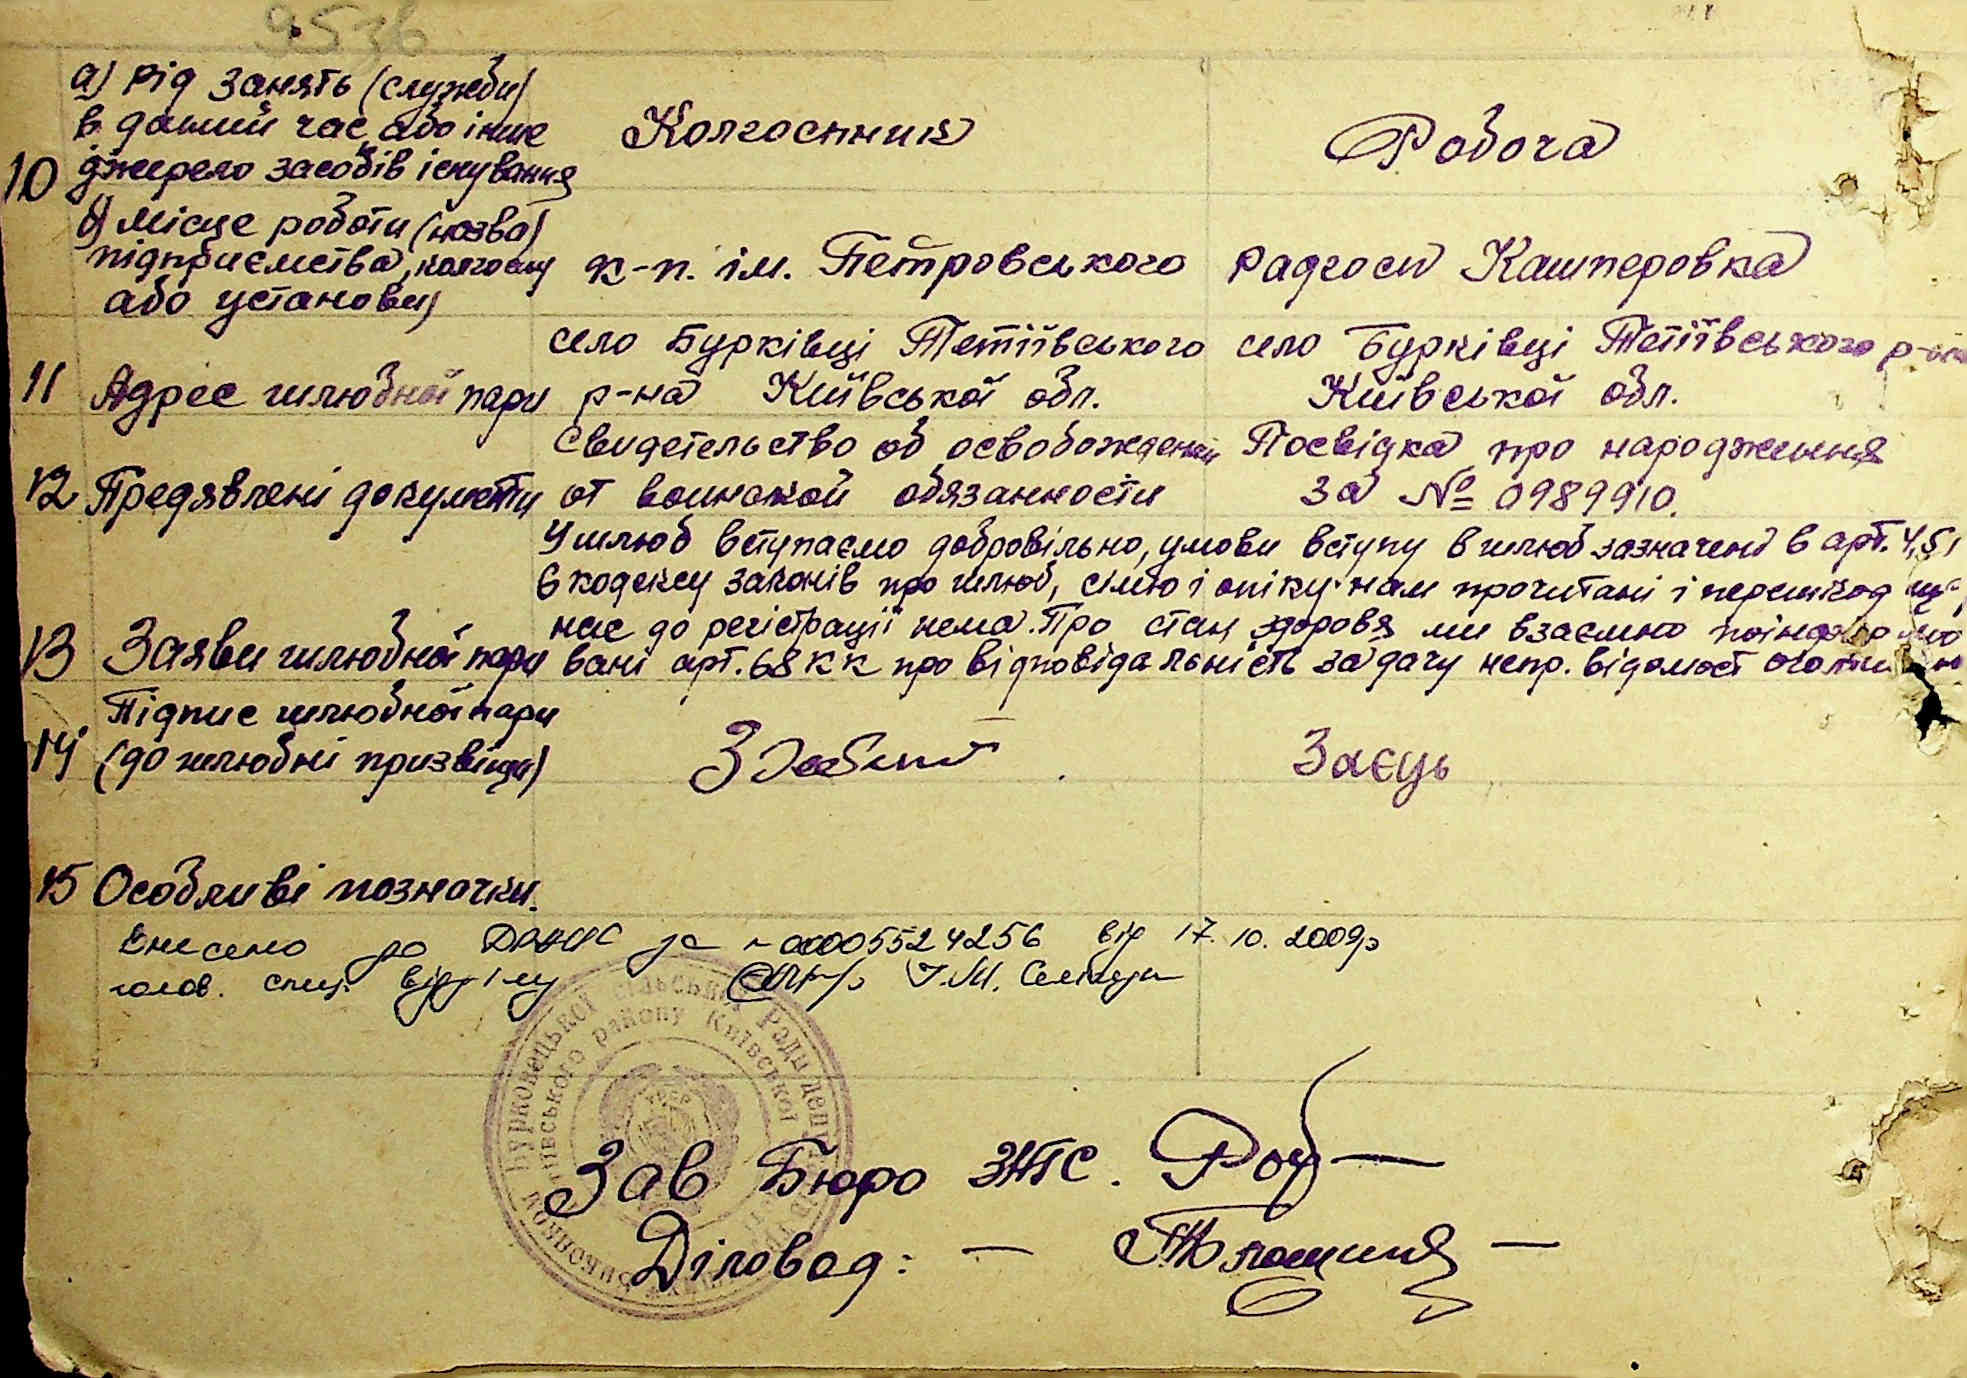 9536
а) рід занять (служби)
в даний час, або інше
10 джерело засобів існування
Колгоспник
Робоча
б) місце роботи (назва)
підприємства, колгоспу
або установи)
к-п. ім. Петровського
Радгосп Кашперовка
11 Адрес шлюбної пари
село Бурківці Тетіївського
р-на Київської обл.
село Бурківці Тетіївського р-на
Київської обл.
12 Предявлені документи
Свидетельство об освобождении
от воинской обязанности
Посвідка про народження
за № 0989910.
13 Заяви шлюбної пари
У шлюб вступаємо добровільно, умови вступу в шлюб зазначені в арт. 4, 5 і
6 кодексу законів про шлюб, сімю і опіку нам прочитані і перешкод
нас до регістрації нема. Про стан здоровя ми взаємно поінформо
вані арт. 68 КК про відповідальність за дачу непр. відомост
14 Підпис шлюбної пари
(до шлюбні призвища)
Заєць
15 Особливі позначки.
Внесено до ДРАЦС за № 00005524256 від 17.10.2009р
голов. спец. відділу
Бурковецької сільської Ради депутатів
районy Київської
УРСР
Зав Бюро ЗАГС.
Діловод: —